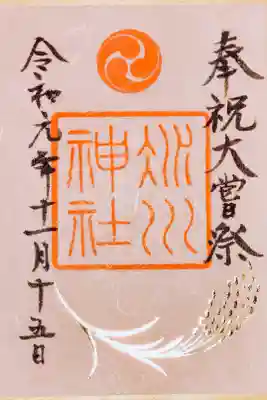 奉祝大嘗祭
氷川
神社
令和元年十一月十五日